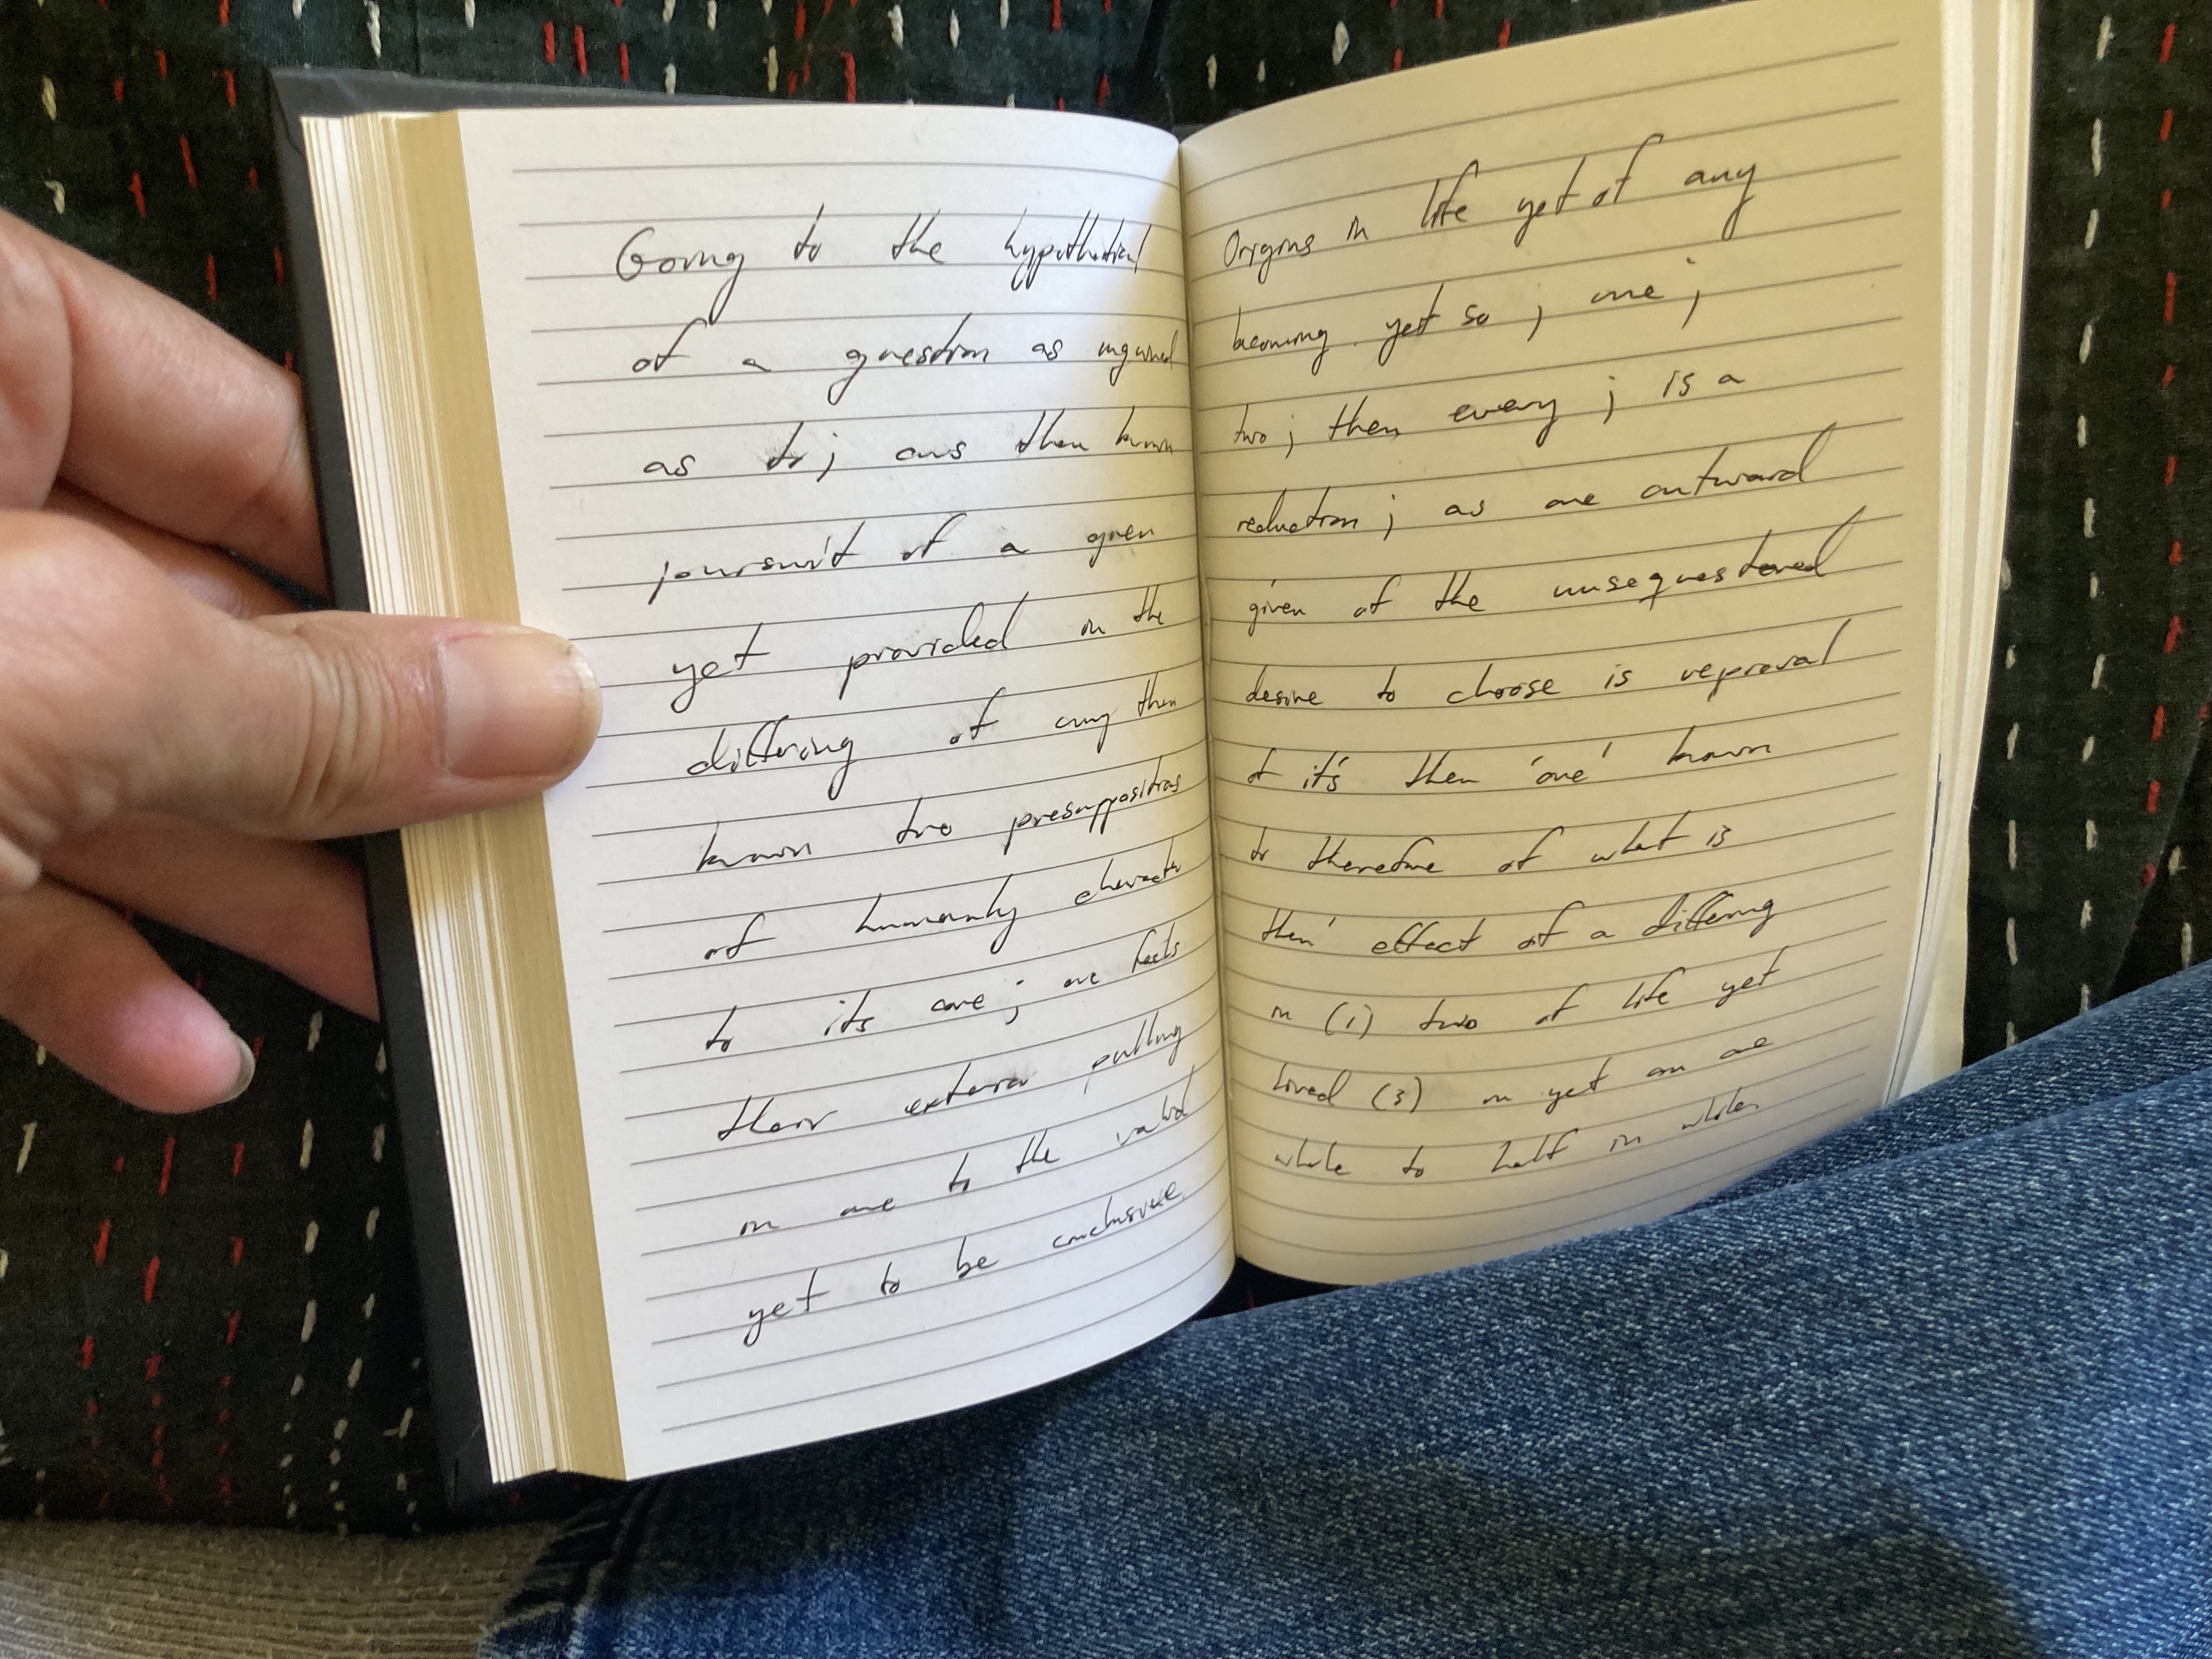 Going to the hypothetical
of a question as inquired
as to; ours then known
poursuit of a given
yet provided in the
differing of any then
known two presuppositions
of humanly character
to its one; one feels
their exterior pulling
in one to the valid
yet to be conclusive.
Origins in life yet of any
becoming yet so; one;
two; then every; is a
reduction; as one outward
given of the unsequestered
desire to choose is reproval
of it's then 'one' known
to therefore of what is
then' effect of a differing
in (1) two of life yet
lived (3) in yet on one
whole to half in whole.